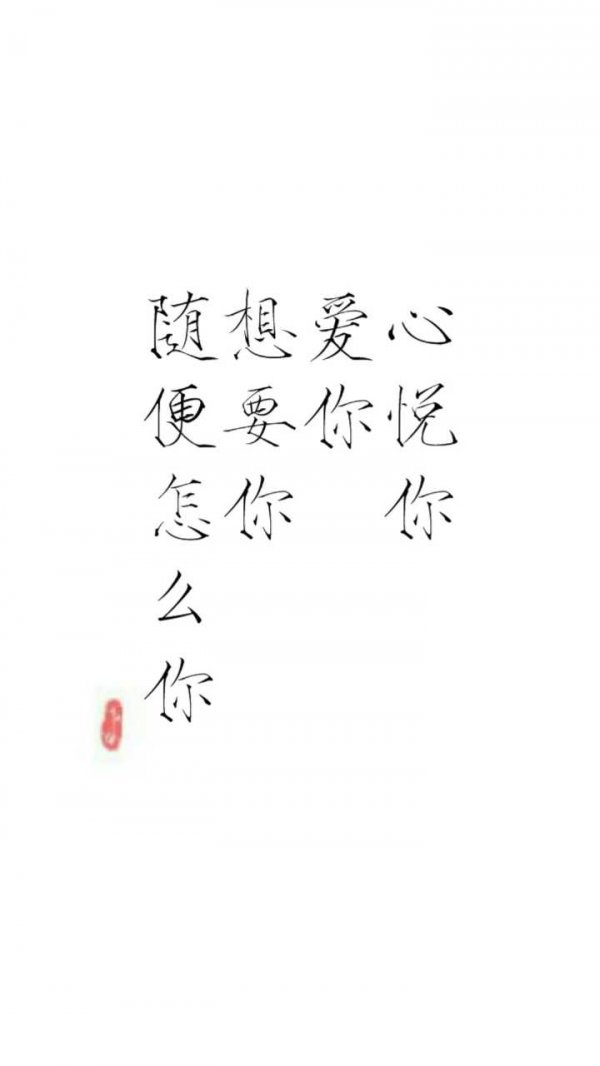 心悦你
爱你
想要你
随便怎么你